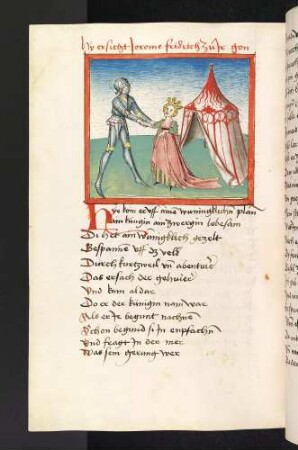 hy ersicht Jerome fridrich zů Jr gon
Hye kom er uff aine wünigkliche plan
ain küngin ain zwergin lobesam
Di het ain wünigklich gezelt
Gespannen uff dz veld
Durch kurtzweil un abentür
Das ersach der gehüier
Und kam aldar
Do er der künigin nam war
Als er Je begunt nachnen
Schon begund si In enpfachn
Und fragt In der mer
Was sein gerung wer